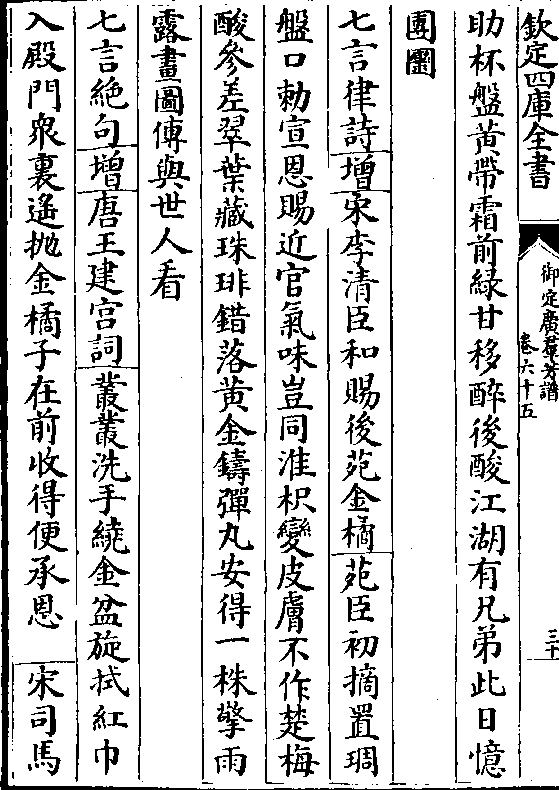 欽定四庫全書
御定廣羣芳譜
卷六十五
三十
助杯盤黄帶霜前緑甘移醉後酸江湖有兄弟此日憶
團圞
七言律詩增宋李清臣和賜後苑金橘苑臣初摘置琱
盤口勅宣恩賜近官氣味豈同淮枳變皮膚不作楚梅
酸參差翠葉藏珠琲錯落黄金鑄彈丸安得一株擎雨
露畫圖傳與世人看
七言絶句增唐王建宫詞叢叢洗手繞金盆旋拭紅巾
入殿門衆裏遙抛金橘子在前收得便承恩 宋司馬